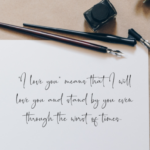 "I love you" means that I will
love you and stand by you even
through the worst of times.